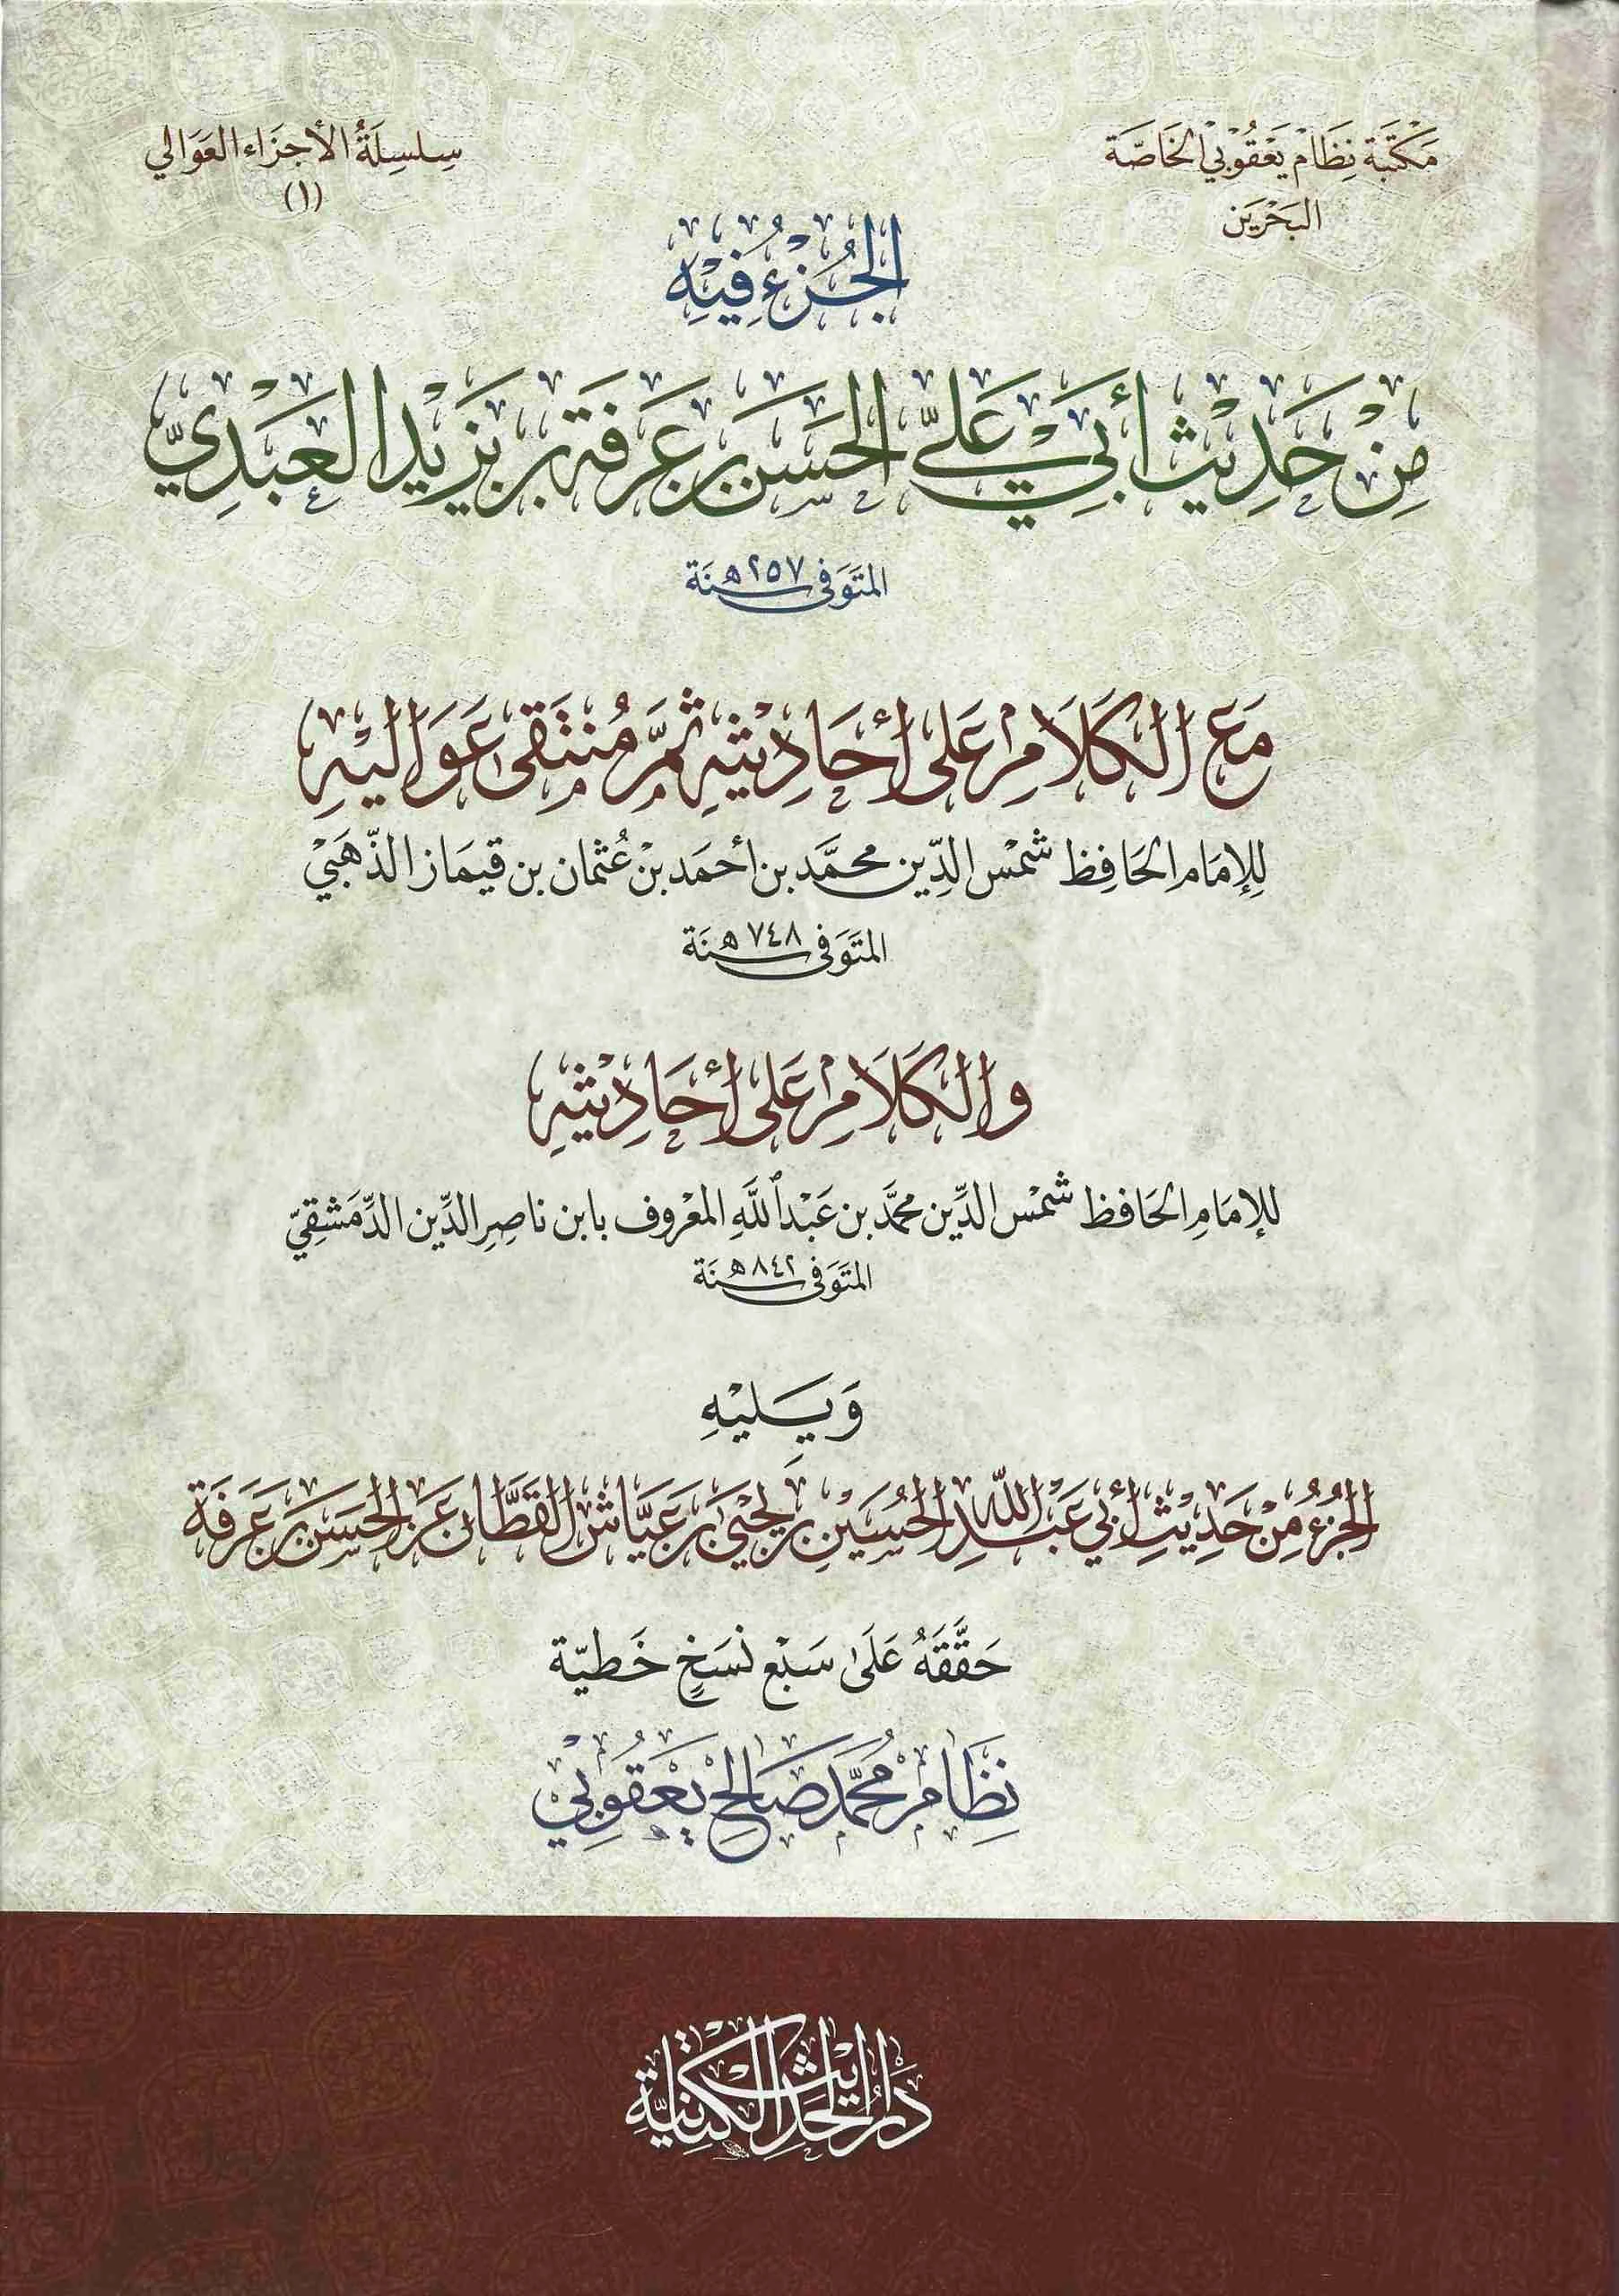 مَكْتَبَة نِظَام يَعْقُوبْي الخَاصَّة
البَحْرَين
سِلسِلَةُ الأجزَاء العَوَالي
(١)
الجُزْء فِيْهِ
مِنْ حَدِيْث أبي عَليّ الحَسَن بن عَرَفَة بن يَزِيْد العَبَدِيّ
المتَوَفى سَنَة ٢٥٧ هـ
مَعَ الكَلَام عَلى أحَادِيْثِهِ ثمَّ مُنتَقى عَوَاليْهِ
لِلإمَام الحَافِظ شَمْس الدِّين محمَّد بن أحمَد بنْ عُثمَان بن قيمَاز الذّهَبيْ
المتَوَفى سَنَة ٧٤٨ هـ
والكَلَام عَلى أحَادِيْثِهِ
للإمَام الحَافظ شَمْس الدِّين محمَّد بن عَبْد اللَّه المعْروف بابن ناصِر الدِّين الدِّمَشقِيّ
المتَوَفى سَنَة ٨٤٢ هـ
وَيَليْهِ
الجُزءُ مِنْ حَدِيْثِ أبي عَبْد اللّه الحُسَيْن بن يَحْيَى بن عَيَّاش القَطَّان عَن الحَسَن بن عَرَفَة
حَقَّقَهُ عَلَىٰ سَبْع نُسَخٍ خَطيّة
نِظَام مُحمَّد صَالِح يَعقُوبيْ
دَارُ الحَدِيْث الكتَّانيَّة